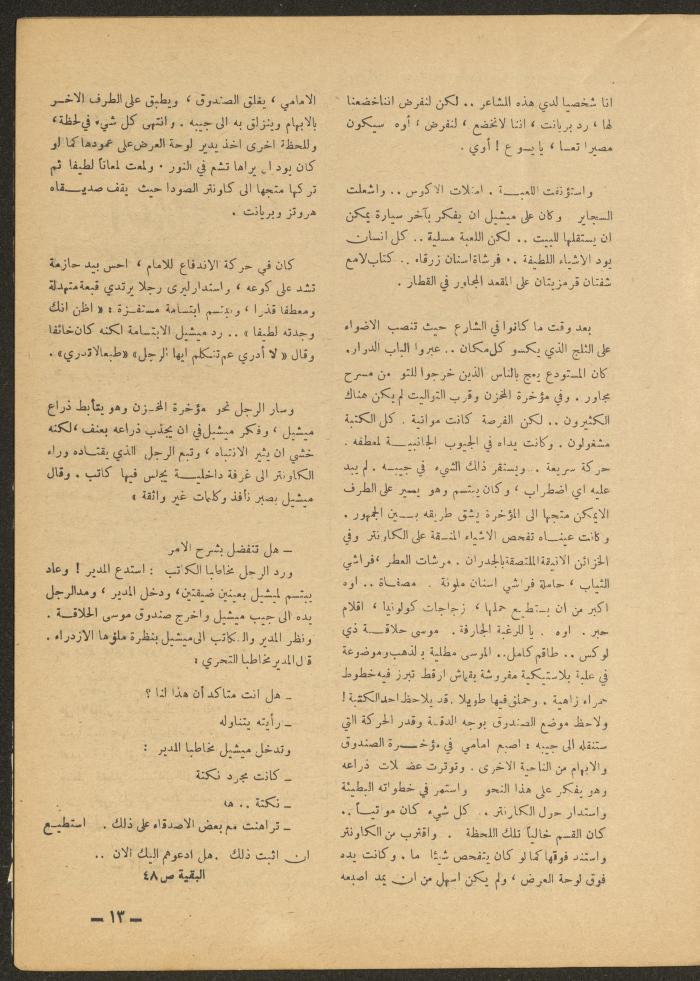 انا شخصيا لدي هذه المشاعر .. لكن لنفرض اننا خضعنا
لها ، رد بريانت ، اننا لانخضع ، لنفرض ، أوه سيكون
مصيرا تعسا ، يا يسوع ! أوي .
واستؤنفت اللعبـة . امتلات الاكوس .. واشعلت
السجاير وكان على ميشيل ان يفكر بآخر سيارة يمكن
ان يستقلها للبيت .. لكن اللعبة مسلية .. كل انسان
يود الاشياء اللطيفة .. فرشاة اسنان زرقاء .. كتاب لامع
شفتان قرمزيتان على المقعد المجاور في القطار .
بعد وقت ما كانوا في الشارع حيث تنصب الاضواء
على الثلج الذي يكسو كل مكان .. عبروا الباب الدوار.
كان المستودع يعج بالناس الذين خرجوا للتو من مسرح
مجاور . وفي مؤخرة المخزن وقرب التواليت لم يكن هناك
الكثيرون .. لكن الفرصة كانت مواتية . كل الكتبة
مشغولون . وكانت يداه في الجيوب الجانبيـة لمعطفه .
حركة سريعة .. ويستقر ذلك الشيء في جيبـه . لم يبد
عليه اي اضطراب ، وكان يبتسم وهو يسير على الطرف
الايمكن متجها الى المؤخرة يشق طريقه بـين الجمهور .
وكانت عينـاه تفحص الاشياء المنسقة على الكاونتر وفي
الخزائن الانيقة الملتصقة بالجدران . مرشات العطر ، فراشي
الثياب ، حاملة فراشي اسنان ملونة . مصفـاة .. اوه
اكبر من ان يستطيع حملها ، زجاجات كولونيا ، اقلام
حبر . اوه . يا للرغبة الجارفة . موسى حلاقـة ذي
لوكس .. طاقم كامل .. الموسى مطلية بالذهب وموضوعة
في علبة بلاستيكية مفروشة بقماش ازرق تبرز فيه خطوط
حمراء زاهية . وحملق فيها طويلا . قد يلاحظ احد الكتبة !
ولاحظ موضع الصندوق بوجه الدقـة وقدر الحركة التي
ستنقله الى جيبه : اصبع امامي في مؤخـرة الصندوق
والابهام من الناحية الاخرى . وتوترت عضـلات ذراعه
وهو يفكر على هذا النحو واستمر في خطواته البطيئة
واستدار حول الكاونتر . كل شيء كان مواتيـاً ..
كان القسم خالياً تلك اللحظة . واقترب من الكاونتر
واستند فوقها كما لو كان يتفحص شيئا ما . وكانت يده
فوق لوحة العرض ، ولم يكن اسهل من ان يمد اصبعه
الامامي ، يغلق الصندوق ، ويطبق على الطرف الاخـر
بالابهام وينزلق به الى جيبه . وانتهى كل شيء في لحظة،
وللحظة اخرى اخذ يدير لوحة العرض على عمودها كما لو
كان يود ان يراها تشع في النور . ولمعت لمعاناً لطيفا ثم
تركها متجها الى كاونتر الصودا حيث يقف صديقـاه
هروتز وبريانت .
كان في حركة الاندفاع للامام ، احس بيد حازمة
تشد على كوعه ، واستدار ليرى رجلا يرتدي قبعة متهدلة
ومعطفا قذرا ، ويبتسم ابتسامة مستفـزة : « اظن انك
وجدته لطيفا » .. رد ميشيل الابتسامة لكنه كان خائفا
وقال « لا أدري عم تتكلم ايها الرجل» «طبعا لاتدري» .
وسار الرجل نحو مؤخرة المخـزن وهو يتأبط ذراع
ميشيل ، وفكر ميشيل في ان يجذب ذراعه بعنف ، لكنه
خشي ان يثير الانتباه ، وتبع الرجل الذي يقتـاده وراء
الكاونتر الى غرفة داخليـة يجلس فيها كاتب . وقال
ميشيل بصبر نافذ وكلمات غير واثقة :
ــ هل تتفضل بشرح الامر
ورد الرجل مخاطبا الكاتب : استدع المدير ! وعاد
يبتسم لميشيل بعينين ضيقتين، ودخل المدير ، ومد الرجل
يده الى جيب ميشيل واخرج صندوق موسى الحلاقـة .
ونظر المدير والكاتب الى ميشيل بنظرة ملؤها الازدراء .
قال المدير مخاطبا التحري :
ــ هل انت متاكد أن هذا لنا ؟
ــ رأيته يتناوله
وتدخل ميشيل مخاطبا المدير :
ــ كانت مجرد نكتة
ــ نكتة .. هه
ــ تراهنت مع بعض الاصدقاء على ذلك . استطيـع
ان اثبت ذلك . هل ادعوهم اليك الان ..
البقية ص ٤٨
ــ ١٣ ــ